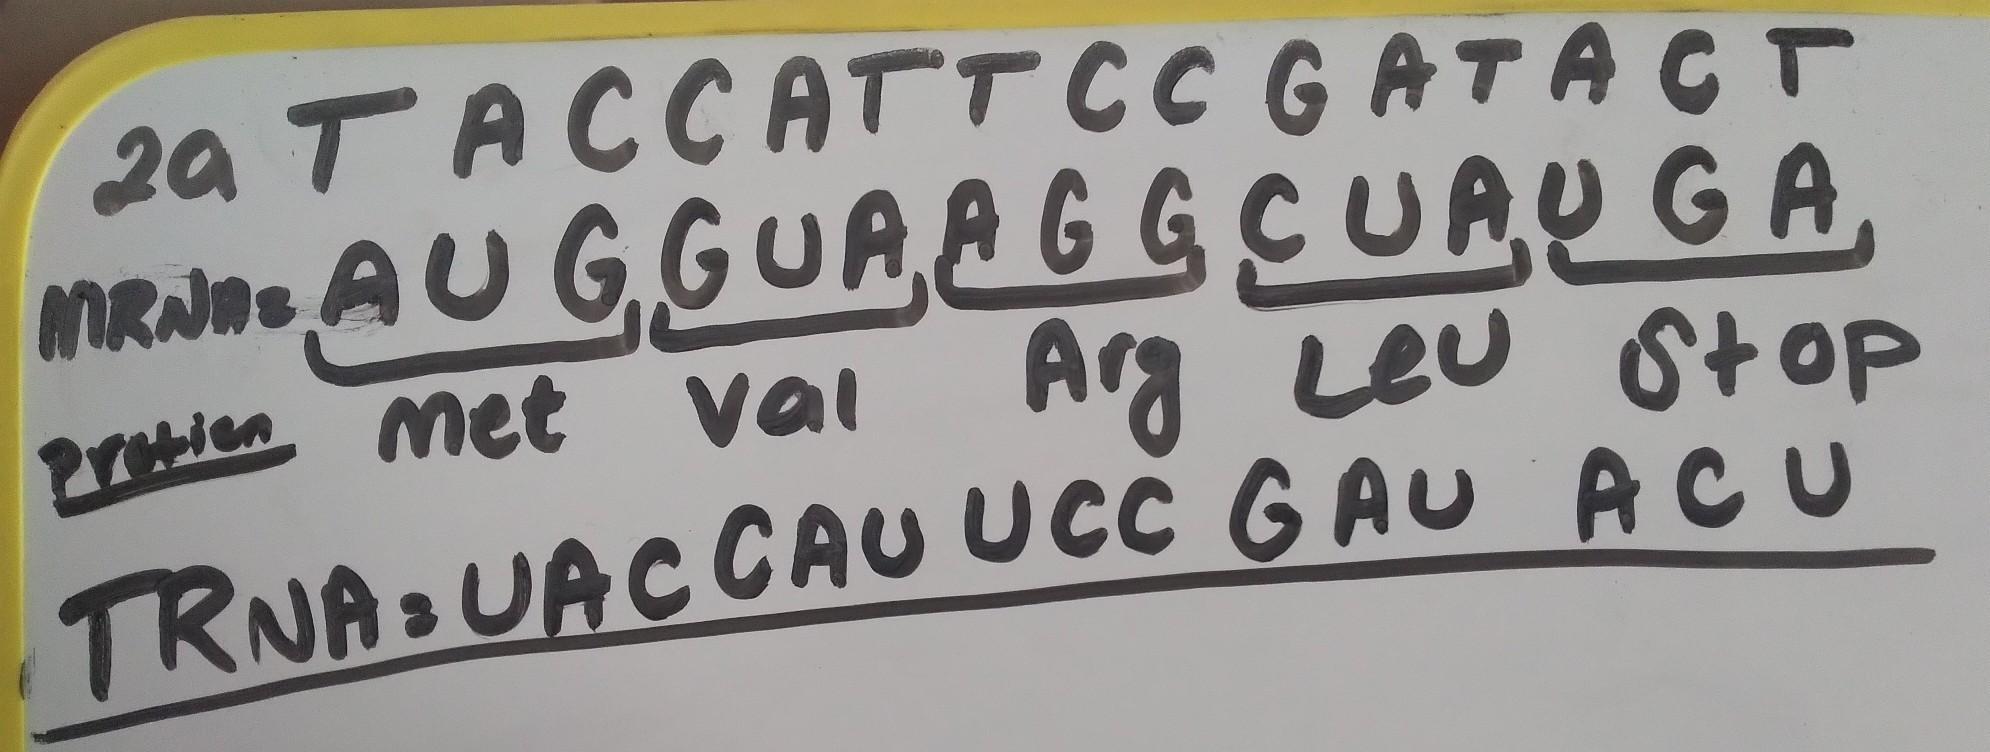 2a T A C C A T T C C G A T A C T
MRNA= A U G G U A A G G C U A U G A
Protien Met Val Arg Leu Stop
TRNA= U A C C A U U C C G A U A C U